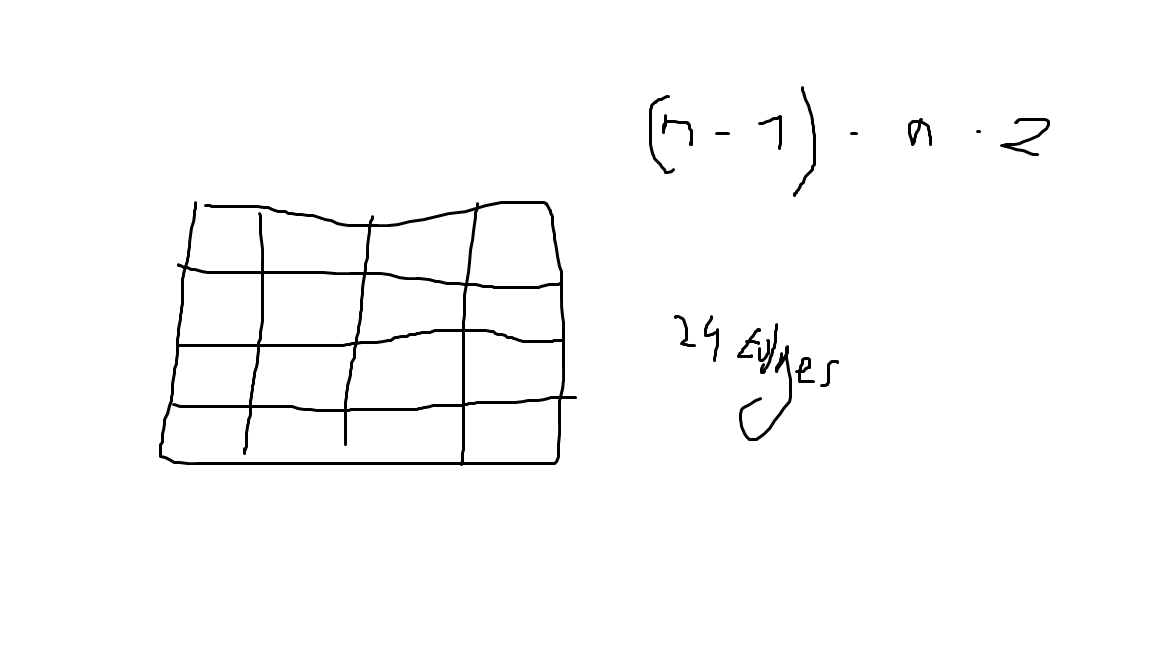 (n - 1) · n · 2
24 Edges